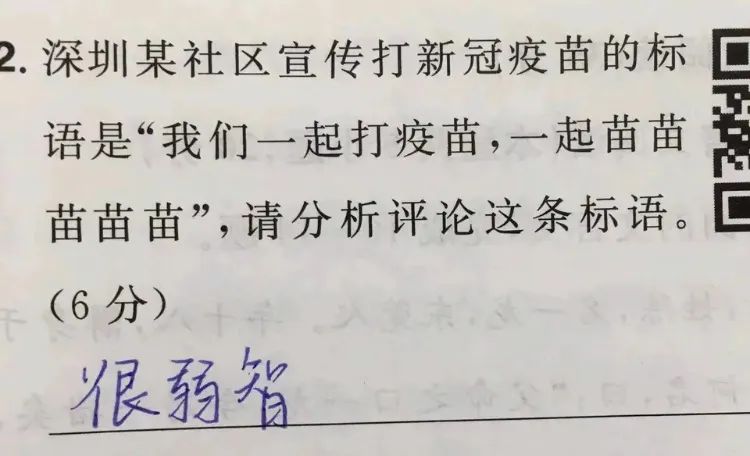 2. 深圳某社区宣传打新冠疫苗的标
语是“我们一起打疫苗,一起苗苗
苗苗苗”,请分析评论这条标语。
(6分)
很弱智